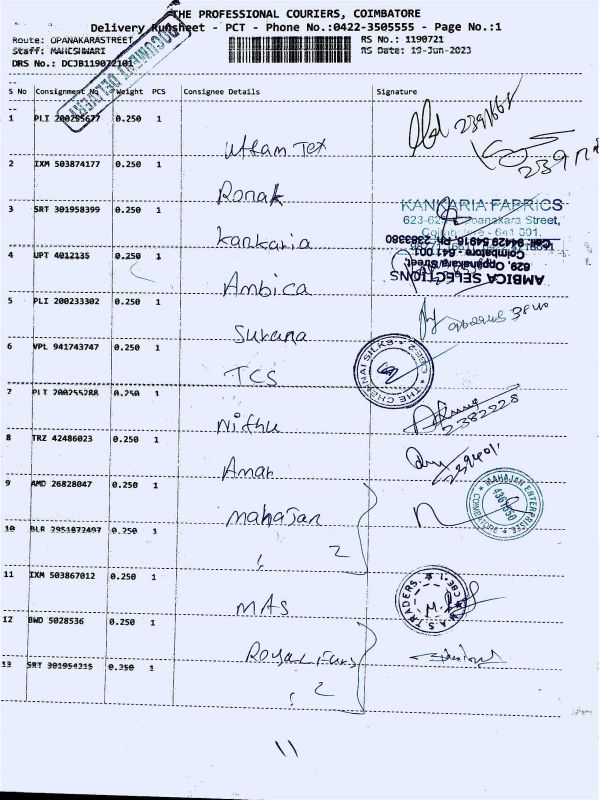 THE PROFESSIONAL COURIERS, COIMBATORE
Delivery Runsheet - PCT - Phone No.:0422-3505555 - Page No.:1
Route: OPANAKARASTREET RS No.: 1190721
Staff: MAHESHWARI RS Date: 19-Jun-2023
DRS No.: DCJB119072101
DOCUMENT DELIVERY
S No Consignment No Weight PCS Consignee Details Signature
1 PLI 200255677 0.250 1
Uttam Tex
2391668
2 IXM 503874177 0.250 1
Ronak
3 SRT 301958399 0.250 1
Kankaria
KANKARIA FABRICS
Oppanakara Street,
Coimbatore - 641 001.
4 UPT 4012135 0.250 1
Ambica
AMBICA SELECTIONS
629, Oppanakara Street,
Coimbatore - 641 001
Cell: 94429 54916, Ph: 2383380
5 PLI 200233302 0.250 1
Surana
6 VPL 941743747 0.250 1
TCS
THE CHENNAI SILKS CBE-2
7 PLI 200255288 0.250 1
Nithu
2382228
8 TRZ 42486023 0.250 1
Aman
9 AMD 26828047 0.250 1
Mahajan
MAHAJAN ENTERPRISES
10 BLR 2951872497 0.250 1
2
11 IXM 503867012 0.250 1
MAS
M.A.S TRADERS. CBE-1
12 BWD 5028536 0.250 1
Royal Furs
13 SRT 301954215 0.250 1
2
11